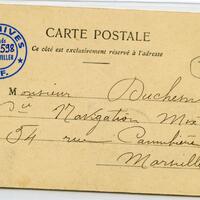 CARTE POSTALE
Ce côté est exclusivement réservé à l'adresse
Monsieur Duchesn
Navigation Mix
54 rue Cannebière
Marseille